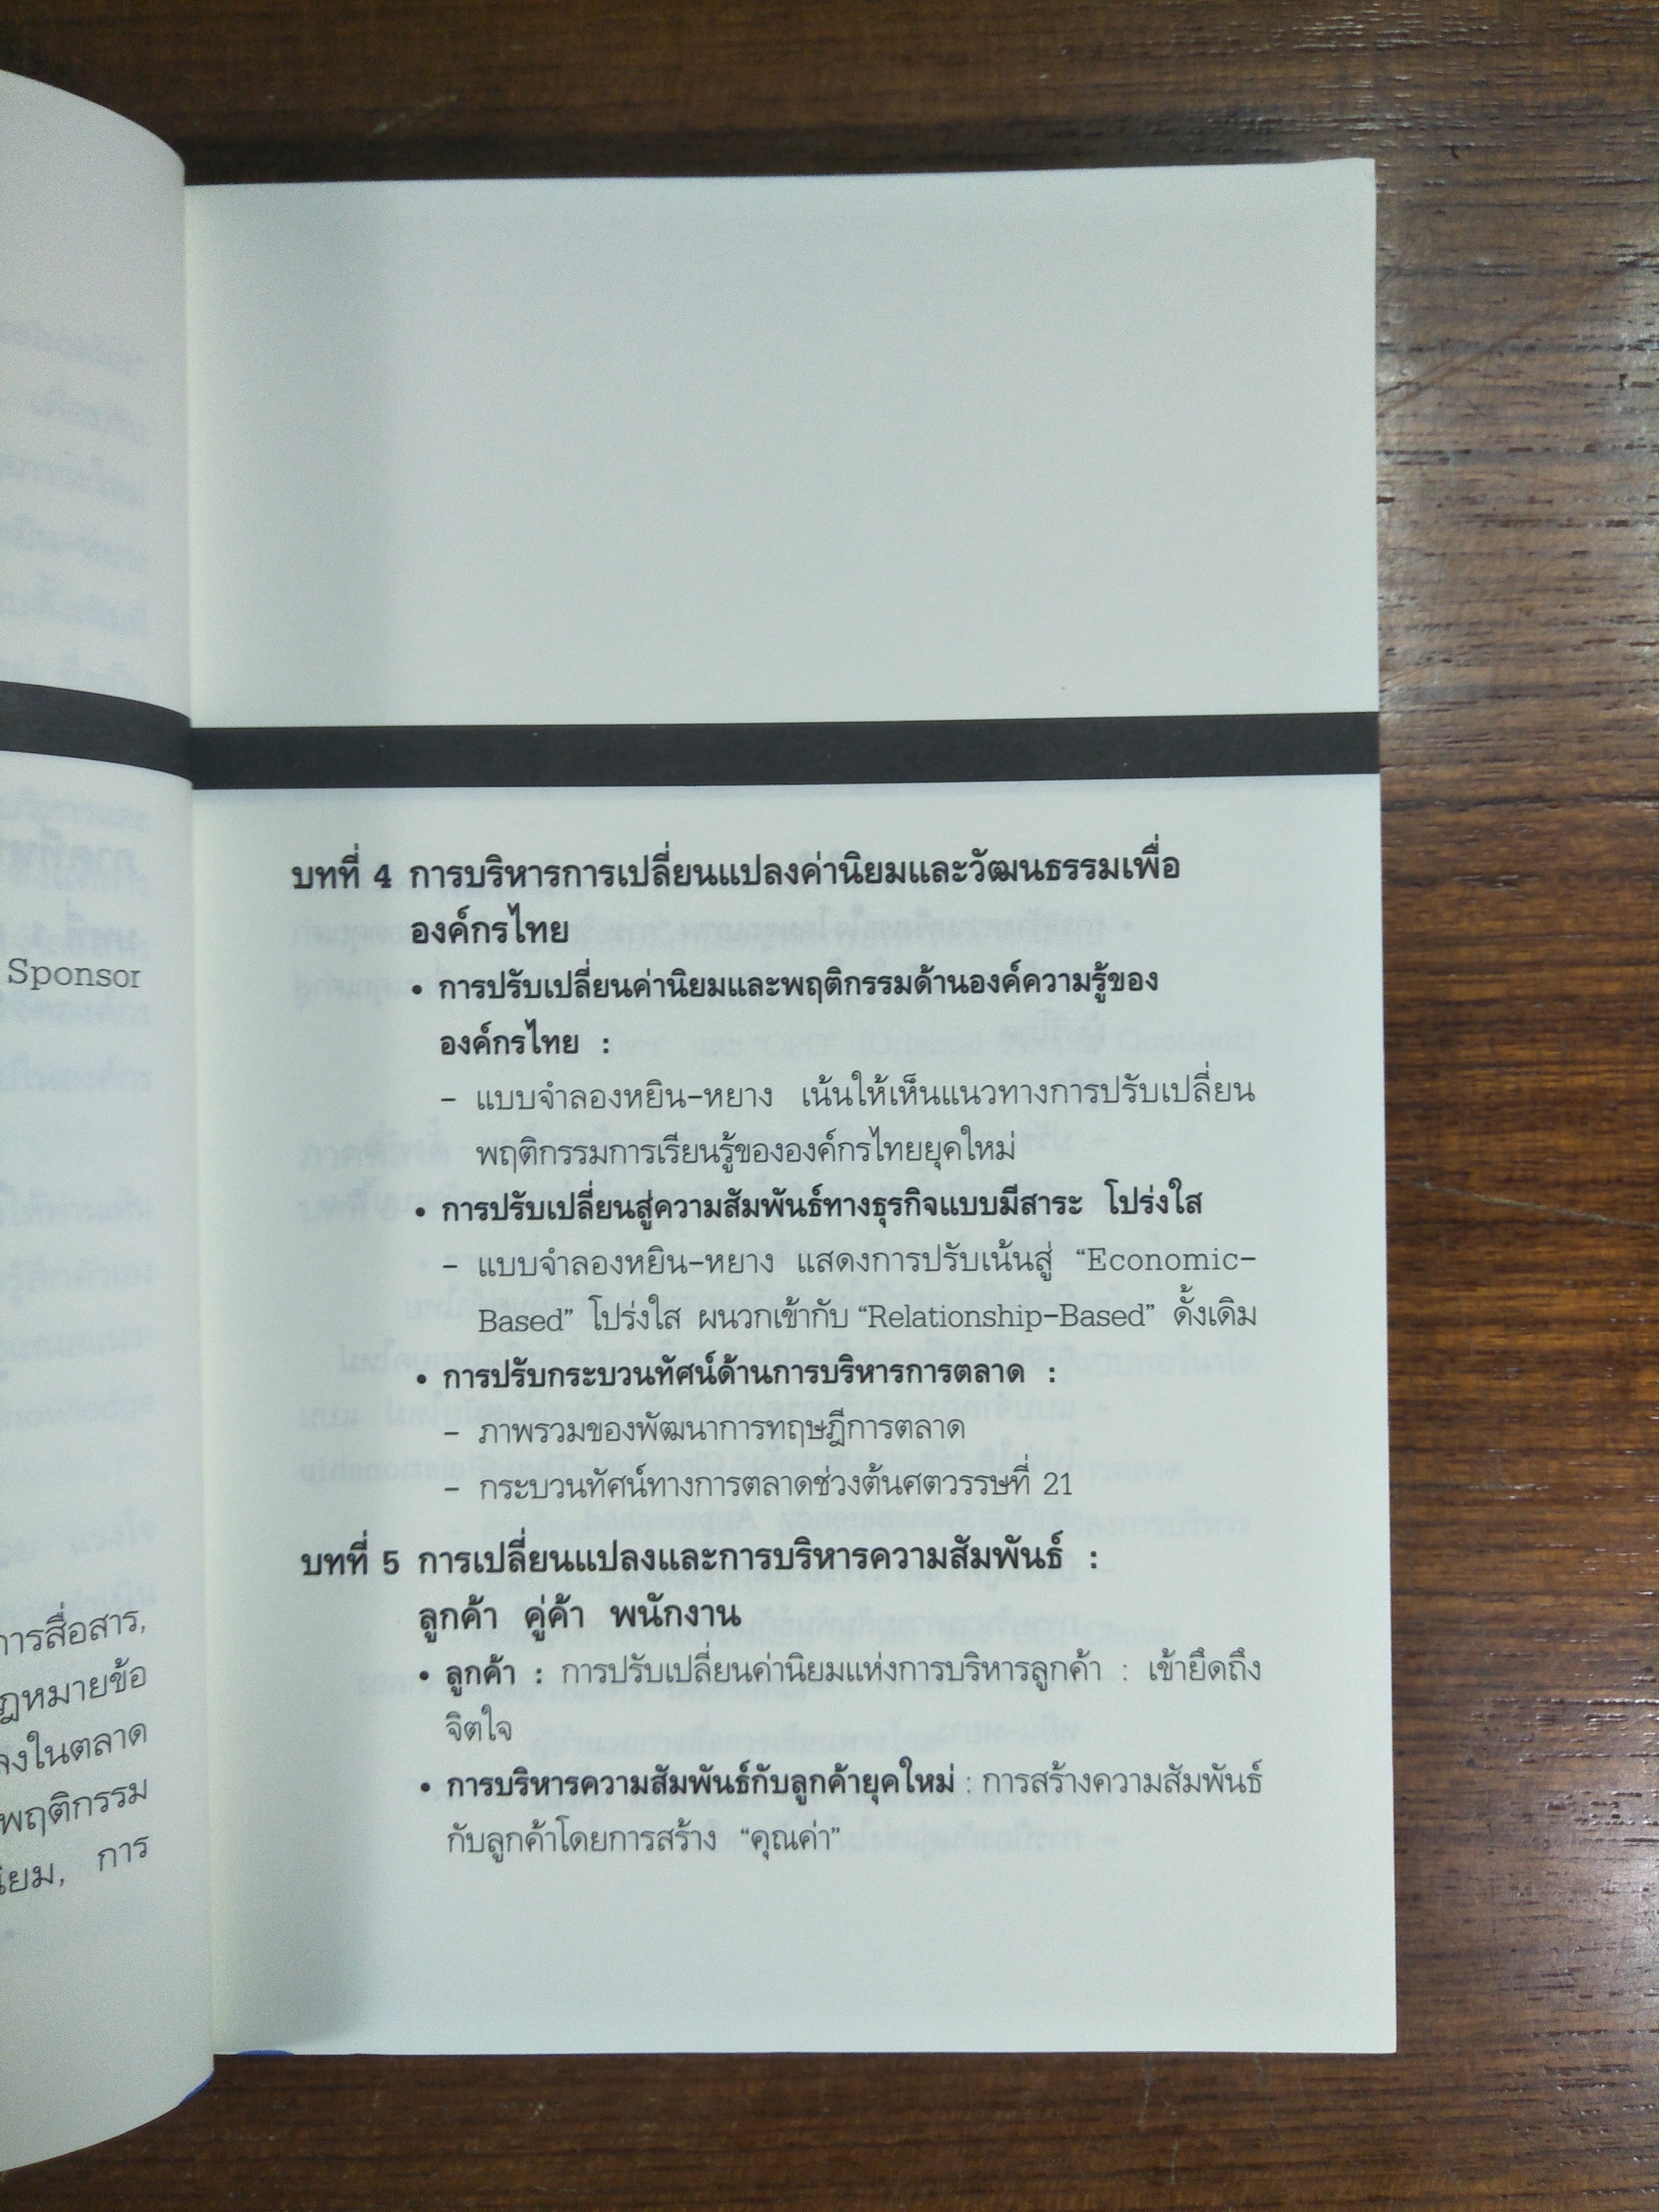 Sponsor
การสื่อสาร,
ลงในตลาด
พฤติกรรม
การ
บทที่ 4 การบริหารการเปลี่ยนแปลงค่านิยมและวัฒนธรรมเพื่อ
องค์กรไทย
• การปรับเปลี่ยนค่านิยมและพฤติกรรมด้านองค์ความรู้ของ
องค์กรไทย :
– แบบจำลองหยิน-หยาง เน้นให้เห็นแนวทางการปรับเปลี่ยน
พฤติกรรมการเรียนรู้ขององค์กรไทยยุคใหม่
• การปรับเปลี่ยนสู่ความสัมพันธ์ทางธุรกิจแบบมีสาระ โปร่งใส
– แบบจำลองหยิน-หยาง แสดงการปรับเน้นสู่ “Economic-
Based” โปร่งใส ผนวกเข้ากับ “Relationship-Based” ดั้งเดิม
• การปรับกระบวนทัศน์ด้านการบริหารการตลาด :
– ภาพรวมของพัฒนาการทฤษฎีการตลาด
– กระบวนทัศน์ทางการตลาดช่วงต้นศตวรรษที่ 21
บทที่ 5 การเปลี่ยนแปลงและการบริหารความสัมพันธ์ :
ลูกค้า คู่ค้า พนักงาน
• ลูกค้า : การปรับเปลี่ยนค่านิยมแห่งการบริหารลูกค้า : เข้ายึดถึง
จิตใจ
• การบริหารความสัมพันธ์กับลูกค้ายุคใหม่ : การสร้างความสัมพันธ์
กับลูกค้าโดยการสร้าง “คุณค่า”